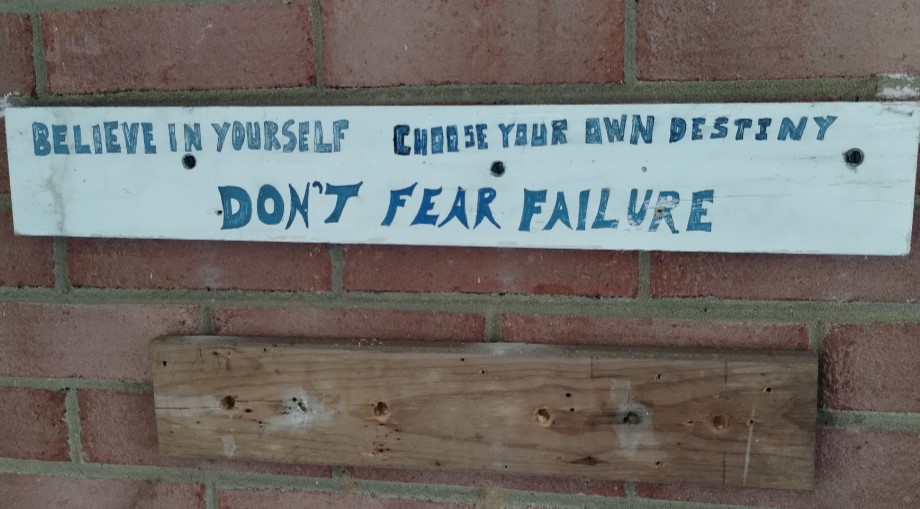 BELIEVE IN YOURSELF CHOOSE YOUR OWN DESTINY
DON'T FEAR FAILURE